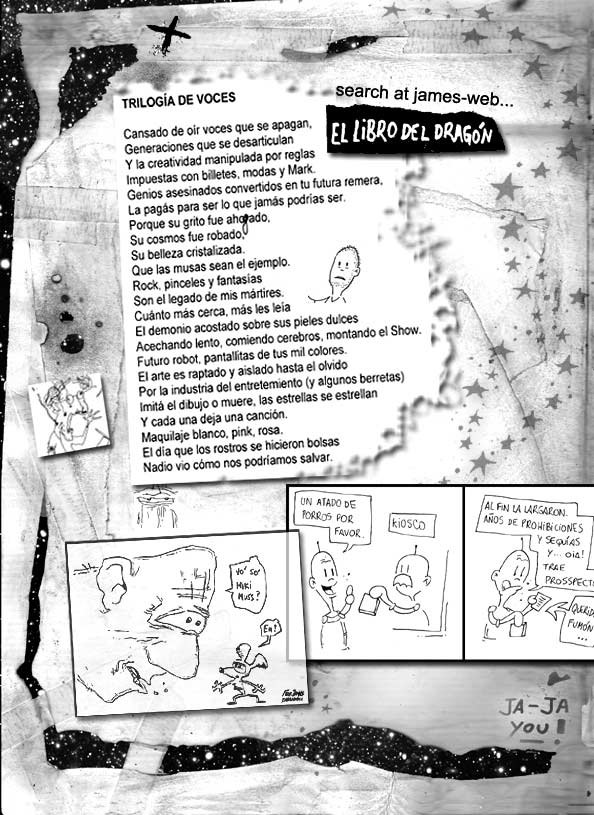 search at james-web...
EL LIBRO DEL DRAGÓN
TRILOGÍA DE VOCES
Cansado de oir voces que se apagan,
Generaciones que se desarticulan
Y la creatividad manipulada por reglas
Impuestas con billetes, modas y Mark.
Genios asesinados convertidos en tu futura remera,
La pagás para ser lo que jamás podrías ser.
Porque su grito fue ahogado,
Su cosmos fue robado,
Su belleza cristalizada.
Que las musas sean el ejemplo.
Rock, pinceles y fantasías
Son el legado de mis mártires.
Cuánto más cerca, más les leía
El demonio acostado sobre sus pieles dulces
Acechando lento, comiendo cerebros, montando el Show.
Futuro robot, pantallitas de tus mil colores.
El arte es raptado y aislado hasta el olvido
Por la industria del entretemiento (y algunos berretas)
Imitá el dibujo o muere, las estrellas se estrellan
Y cada una deja una canción.
Maquilaje blanco, pink, rosa.
El día que los rostros se hicieron bolsas
Nadio vio cómo nos podríamos salvar.
UN ATADO DE
PORROS POR
FAVOR.
KIOSCO
AL FIN LA LARGARON.
AÑOS DE PROHIBICIONES
Y SEQUÍAS
Y... OIA!
TRAE
PROSSPECT
QUERID
FUMÓN
...
YO' SO'
MIKI
MUSS?
EH?
JA-JA
YOU!